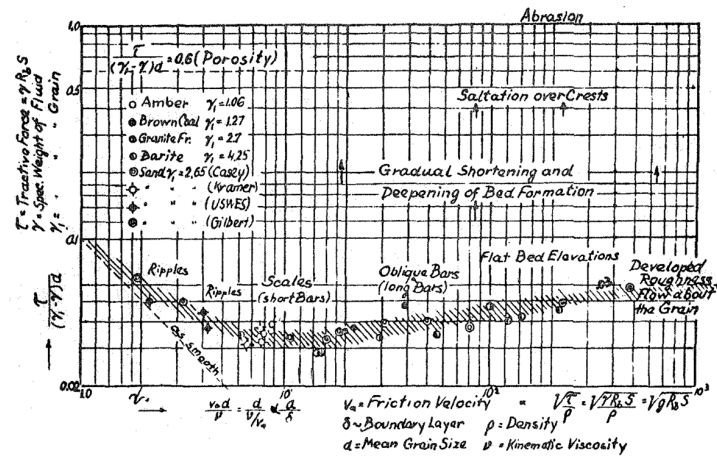 Abrasion
1.0
τ/(γ₁-γ)d = 0.6 (Porosity)
0.5
Amber γ₁=1.06
Brown Coal γ₁=1.27
Granite Fr. γ₁=2.7
Barite γ₁=4.25
Sand γ₁=2.65 (Casey)
" " " (Kramer)
" " " (USWES)
" " " (Gilbert)
τ = Tractive Force = γ R_b S
γ = Spec. Weight of Fluid
γ₁ = " " " Grain
Saltation over Crests
Gradual Shortening and
Deepening of Bed Formation
0.1
Ripples
Ripples
Scales
(short Bars)
Oblique Bars
(long Bars)
Flat Bed Elevations
Developed
Roughness
Flow about
the Grain
τ/(γ₁-γ)d
as smooth
0.02
1.0
10¹
10²
10³
v* d/ν = d/(ν/v*) ∝ d/δ
v* = Friction Velocity = √τ/ρ = √γR_b S/ρ = √gR_b S
δ ~ Boundary Layer ρ = Density
d = Mean Grain Size ν = Kinematic Viscosity